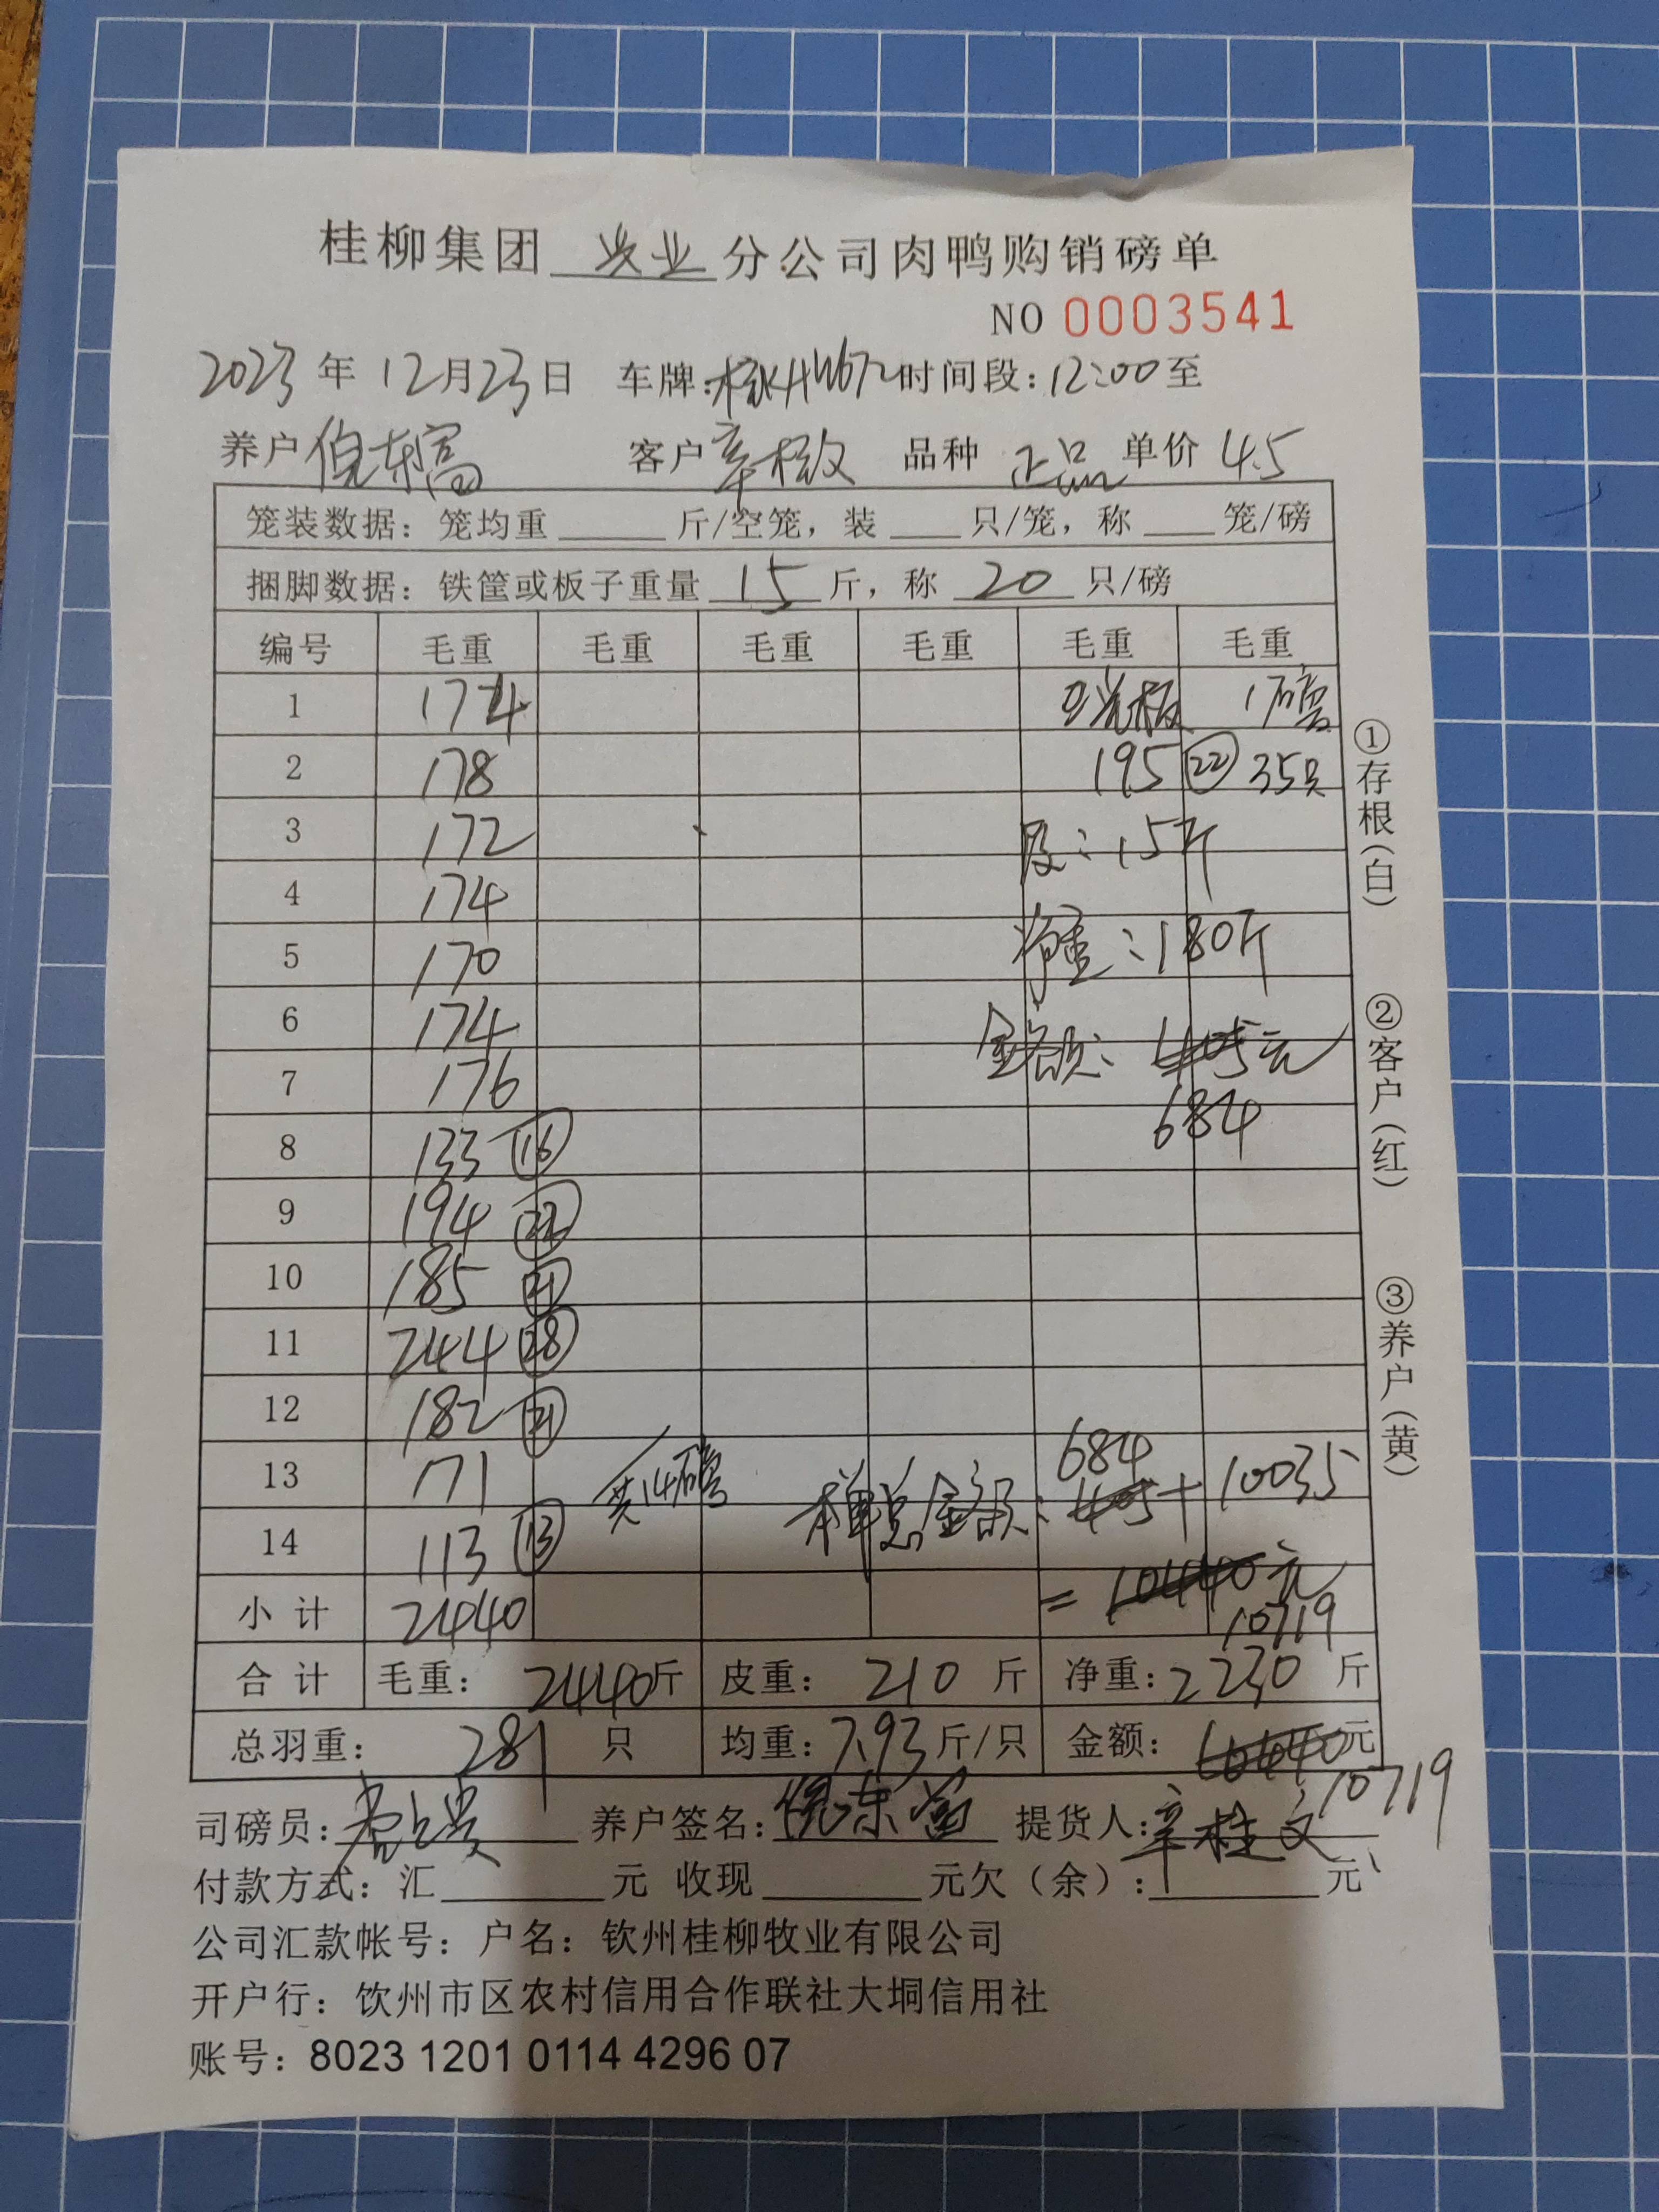 桂柳集团 牧业 分公司肉鸭购销磅单
NO 0003541
2023 年 12月23日 车牌: 时间段:12:00至
养户 倪东富 客户 辛桂文 品种 正品 单价 4.5
笼装数据：笼均重 斤/空笼，装 只/笼，称 笼/磅
捆脚数据：铁筐或板子重量 15 斤，称 20 只/磅
编号 毛重 毛重 毛重 毛重 毛重 毛重
1 174 光板 1磅
2 178 195 22 35只
3 172 皮:15斤
4 174
5 170 净重:180斤
6 174 金额: 405元
7 176 684
8 133 16
9 194 22
10 185 21
11 244 28
12 182 21
13 171 共14磅 本单总金额: 684 405+10035
14 113 13 =10440元
小计 2440 10719
合计 毛重: 2440斤 皮重: 210 斤 净重:2230 斤
总羽重: 281 只 均重:7.93斤/只 金额: 10440元
10719
司磅员: 养户签名:倪东富 提货人:辛桂文
付款方式: 汇 元 收现 元欠（余）: 元
公司汇款帐号：户名：钦州桂柳牧业有限公司
开户行：饮州市区农村信用合作联社大垌信用社
账号：8023 1201 0114 4296 07
①存根(白)
②客户(红)
③养户(黄)